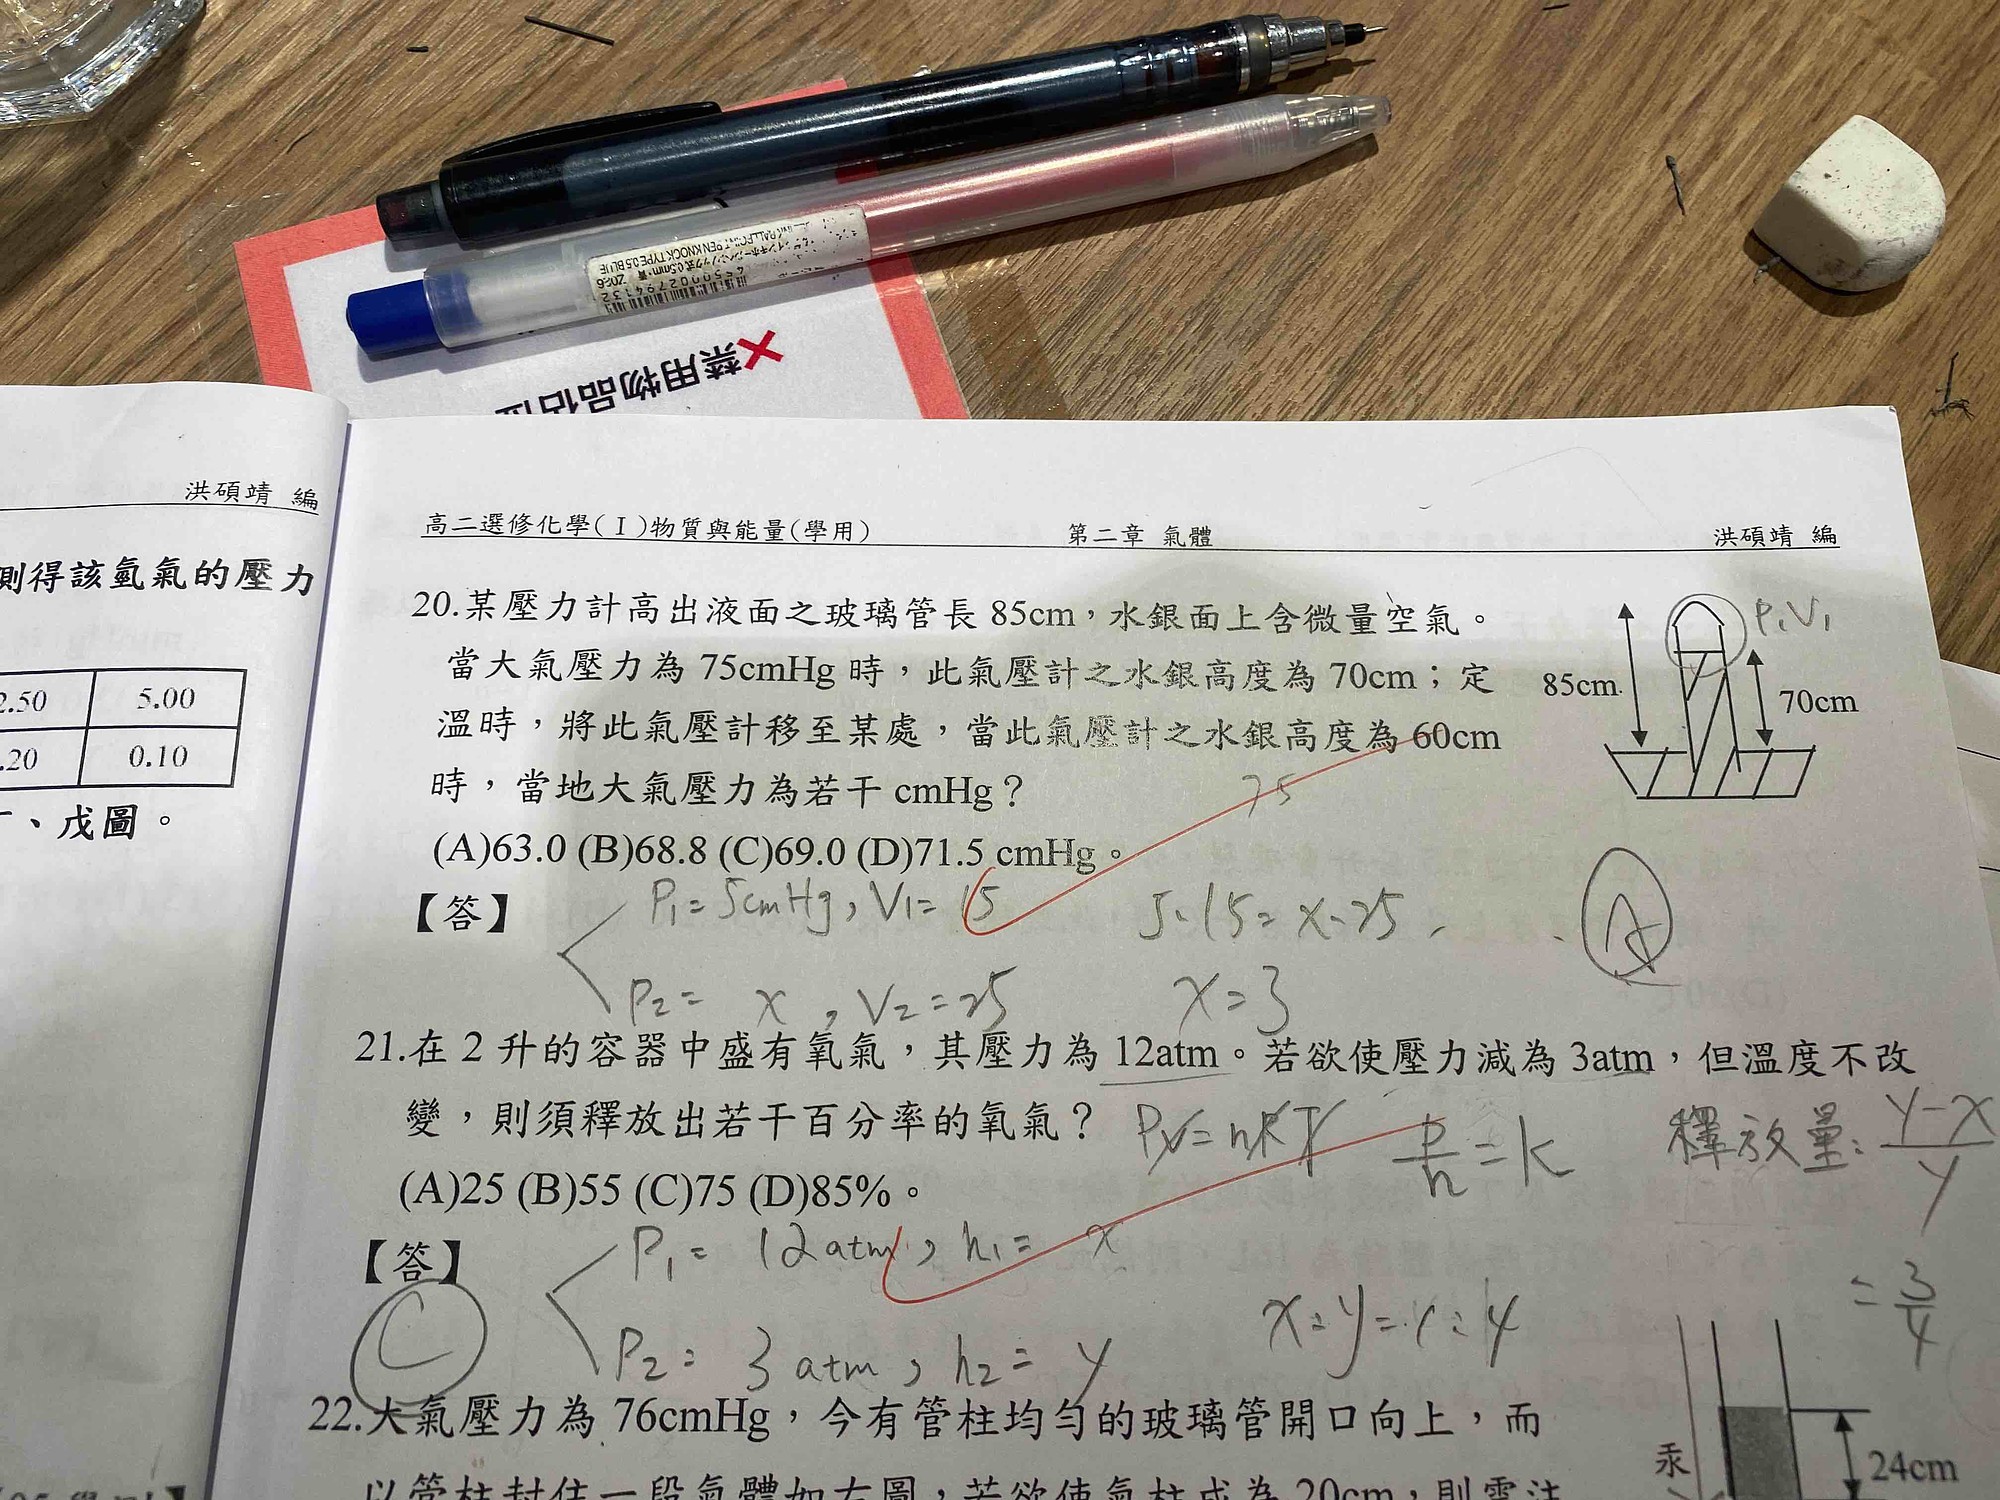 INK BALLPOINT PEN KNOCK TYPE 0.5 BLUE
4550002794132
禁用物品佔位
洪碩靖 編
測得該氫氣的壓力
2.50 5.00
.20 0.10
、戊圖。
高二選修化學(I)物質與能量(學用) 第二章 氣體 洪碩靖 編
20.某壓力計高出液面之玻璃管長 85cm,水銀面上含微量空氣。
當大氣壓力為 75cmHg 時,此氣壓計之水銀高度為 70cm;定
溫時,將此氣壓計移至某處,當此氣壓計之水銀高度為 60cm
時,當地大氣壓力為若干 cmHg?
(A)63.0 (B)68.8 (C)69.0 (D)71.5 cmHg。
P₁V₁
85cm
70cm
75
【答】
P₁=5cmHg, V₁=15
5·15=x·25
A
P₂= x , V₂=25
x=3
21.在 2 升的容器中盛有氧氣,其壓力為 12atm。若欲使壓力減為 3atm,但溫度不改
變,則須釋放出若干百分率的氧氣?
PV=nRT
P/n=k
釋放量: y-x/y
(A)25 (B)55 (C)75 (D)85%。
=3/4
【答】
C
P₁= 12atm , n₁= x
P₂= 3 atm , n₂= y
x:y=1:4
22.大氣壓力為 76cmHg,今有管柱均勻的玻璃管開口向上,而
以管柱封住一段氣體如右圖,若欲使氣柱成為 20cm,則需注
汞
24cm